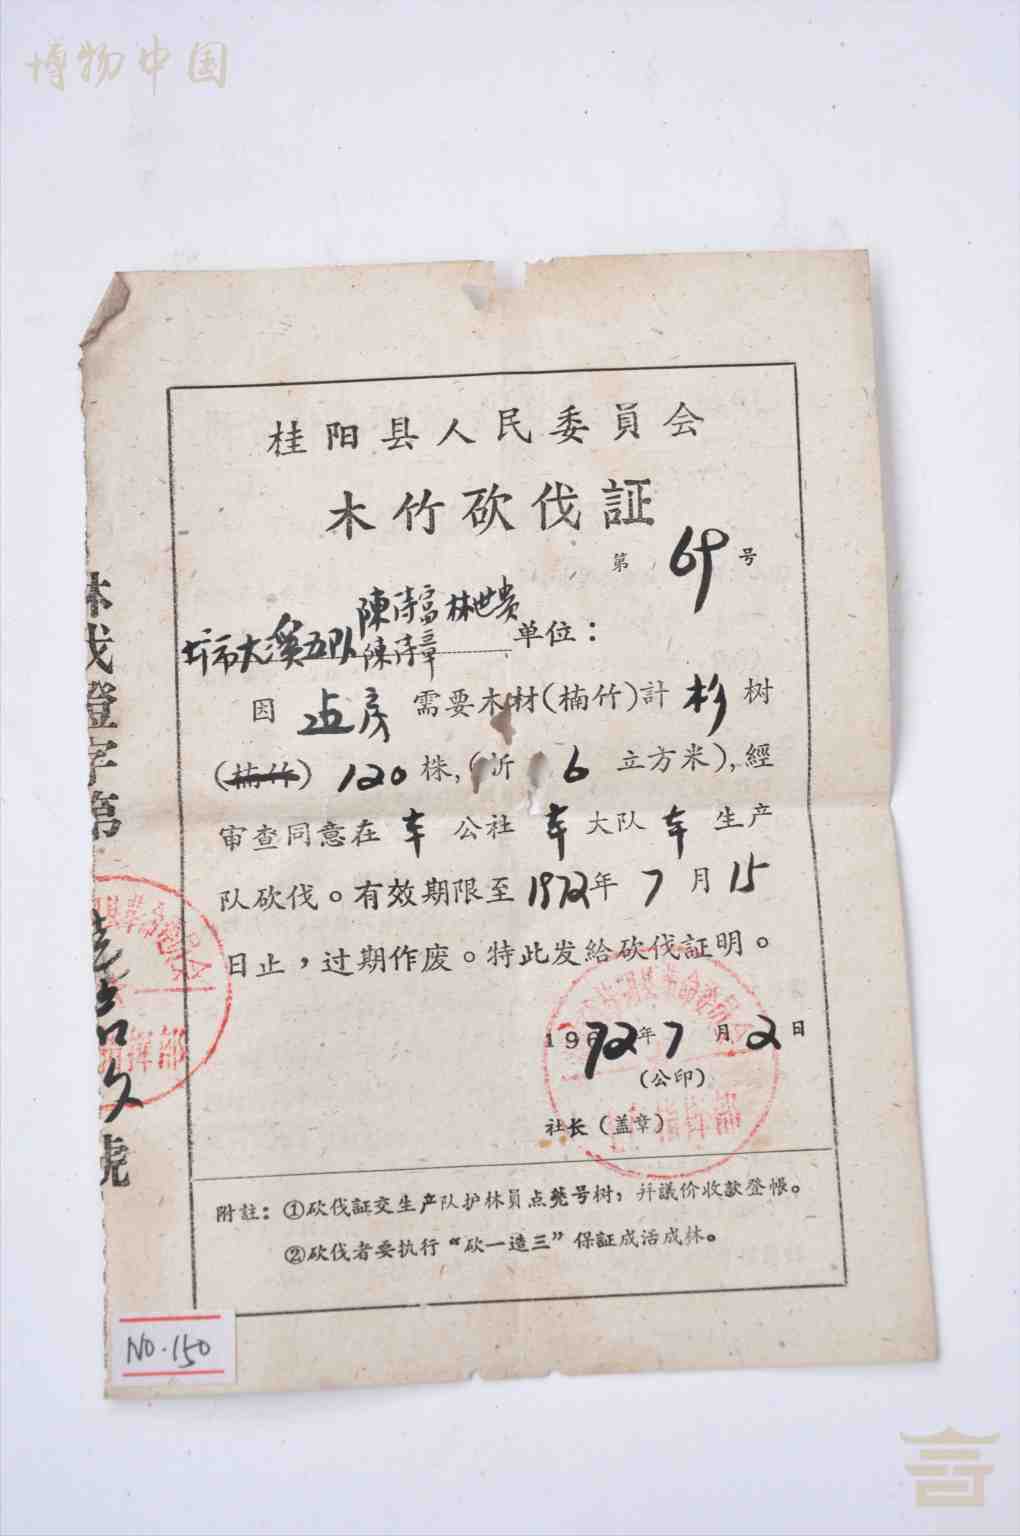 博物中国
桂阳县人民委員会
木竹砍伐証
第 69 号
陳诗富 林世贵
圩市大溪五队 陳诗章 单位：
因 造房 需要木材(楠竹)計 杉 树
(楠竹) 120 株,(折 6 立方米),經
审查同意在 本 公社 本 大队 本 生产
队砍伐。有效期限至1972年 7 月 15
日止，过期作废。特此发給砍伐証明。
1972年 7 月 2 日
(公印)
社长（盖章）
附註：①砍伐証交生产队护林員点蔸号树，幷議价收款登帳。
②砍伐者要执行“砍一造三”保証成活成林。
林伐證字第
號
指揮部
NO.150